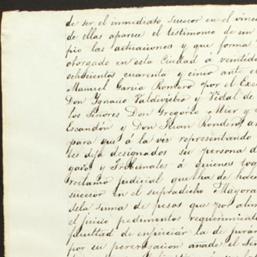 de ser el inmediato, sucesor en el vinc
de ellas aparece el testimonio de un
pio las actuaciones y que forma
otorgado en esta Ciudad a veintido
ochocientos cuarenta y cinco ante e
Manuel Garcia Romero por el Exc
Don Ignacio Valdivielso y Vidal de
los Señores Don Gregorio Mier y
Escandón y Don Juan Rondero
para que á la vez representando
les dejó designados su persona d
gados y Tribunales á quienes toq
reclamo judicial, que ha de hace
sucesor en el supradicho Mayora
de la suma de pesos que por alim
el juicio pedimentos requerimient
facultad de enjuiciar la de jurar
por su peroracion añade el Se